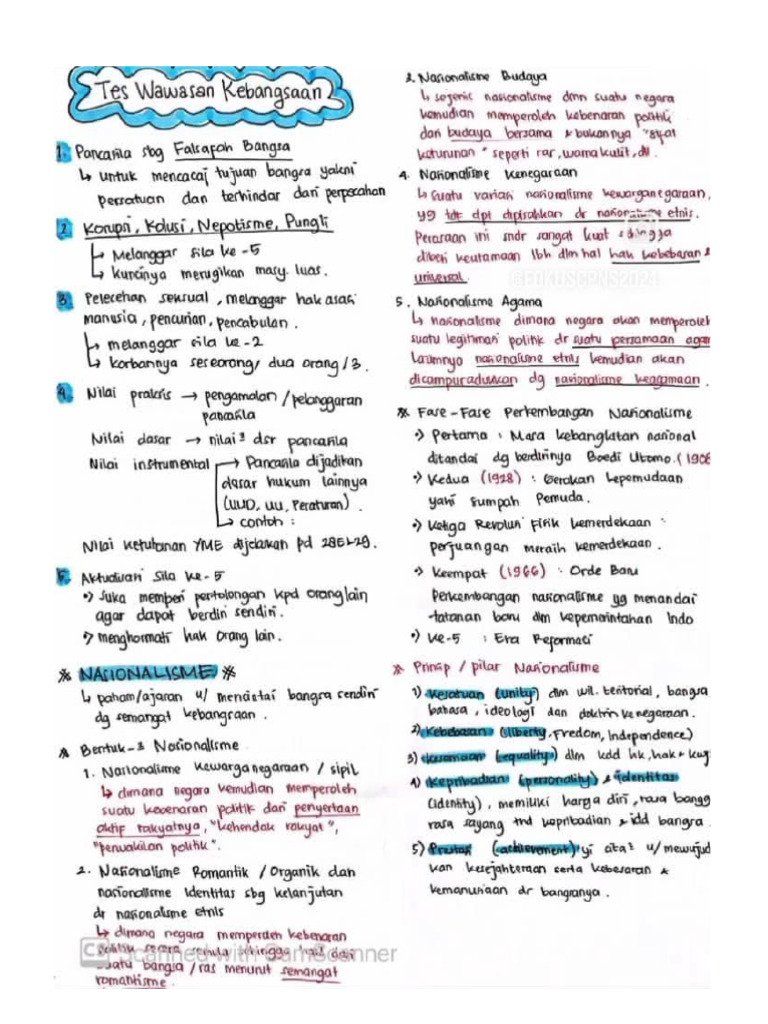 Tes Wawasan Kebangsaan
1. Pancasila sbg Falsafah Bangsa
↳ untuk mencacaj tujuan bangsa yakni
persatuan dan terhindar dari perpecahan
2. Korupsi, Kolusi, Nepotisme, Pungli
↳ Melanggar sila ke-5
↳ Kuncinya merugikan masy. luas.
3. Pelecehan seksual, melanggar hak asasi
manusia, pencurian, pencabulan.
↳ melanggar sila ke-2
↳ korbannya seseorang/ dua orang/3.
4. Nilai praksis → pengamalan/pelanggaran
pancasila
Nilai dasar → nilai² dsr pancasila
Nilai instrumental → Pancasila dijadikan
dasar hukum lainnya
(UUD, UU, Peraturan).
↳ contoh :
Nilai Ketuhanan YME dijelaskan pd 28E1-29.
5. Aktualisasi Sila ke-5
•) Suka memberi pertolongan kpd orang lain
agar dapat berdiri sendiri.
•) menghormati hak orang lain.
* NASIONALISME *
↳ paham/ajaran u/ mencintai bangsa sendiri
dg semangat kebangsaan.
* Bentuk-² Nasionalisme
1. Nasionalisme Kewarganegaraan / sipil
↳ dimana negara kemudian memperoleh
suatu kebenaran politik dari penyertaan
aktif rakyatnya, "kehendak rakyat",
"perwakilan politik".
2. Nasionalisme Romantik / Organik dan
nasionalisme Identitas sbg kelanjutan
dr nasionalisme etnis
↳ dimana negara memperoleh kebenaran
politik secara semula sehingga hasil dari
suatu bangsa/ras menurut semangat
romantisme.
3. Nasionalisme Budaya
↳ sejenis nasionalisme dmn suatu negara
kemudian memperoleh kebenaran politik
dari budaya bersama & bukannya "sifat
keturunan" seperti ras, warna kulit, dll.
4. Nasionalisme Kenegaraan
↳ Suatu variasi nasionalisme kewarganegaraan,
yg tdk dpt dipisahkan dr nasionalisme etnis.
Perasaan ini sndr sangat kuat shingga
diberi keutamaan lbh dlm hal hak kebebasan &
universal.
5. Nasionalisme Agama
↳ nasionalisme dimana negara akan memperoleh
suatu legitimasi politik dr suatu persamaan agama
Lazimnya nasionalisme etnis kemudian akan
dicampuradukkan dg nasionalisme keagamaan.
* Fase-Fase Perkembangan Nasionalisme
•) Pertama : Masa kebangkitan nasional
ditandai dg berdirinya Boedi Utomo. (1908
•) Kedua (1928) : Gerakan Kepemudaan
yakni Sumpah Pemuda.
•) Ketiga Revolusi Fisik Kemerdekaan :
perjuangan meraih kemerdekaan.
•) Keempat (1966) : Orde Baru
Perkembangan nasionalisme yg menandai
tatanan baru dlm kepemerintahan Indo
•) Ke-5 : Era Reformasi
* Prinsip / pilar Nasionalisme
1) Kesatuan (unity) dlm wil. teritorial, bangsa
bahasa, ideologi dan doktrin kenegaraan.
2) Kebebasan (liberty, Fredom, Independence)
3) Kesamaan (equality) dlm kdd hk, hak &
4) Kepribadian (personality) & identitas
(identity), memiliki harga diri, rasa bangg
rasa sayang thd kepribadian & idd bangsa.
5) Prestasi (achievement) yi cita² u/ mewujud
kan kesejahteraan serta kebesaran &
kemanusiaan dr bangsanya.
CS Scanned with CamScanner